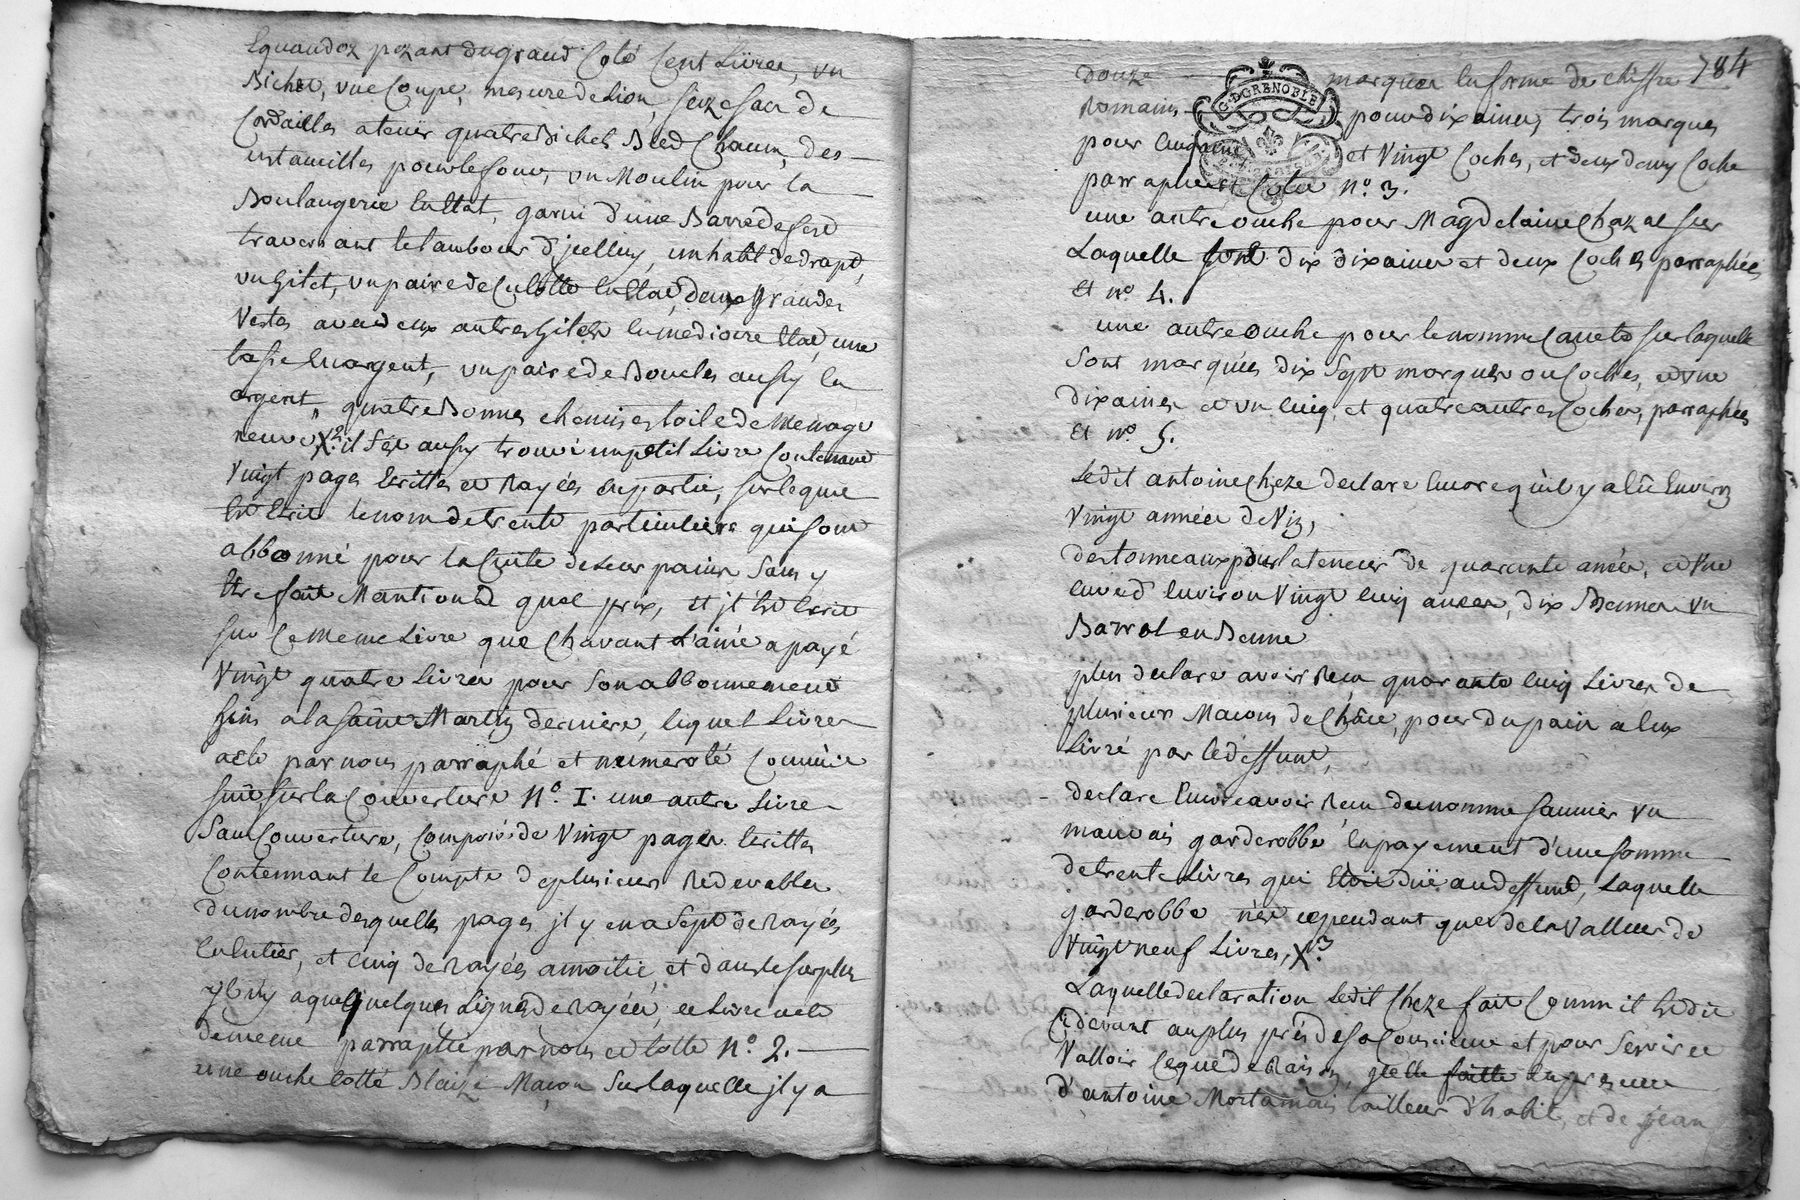 Equandoz pezant dugrand Coté Cent Livres, un
Bichet, une Coupe, mesure de Lion, seize sacs de
Cordailles a tenir quatre Bichets Bled Chacun, des
estamilles pour le four, un Moulin pour la
Boulangerie En Etat, garni d'une Barre de fer
traversant le tambour d'jcelluy, un habit de drapt,
un gilet, un paire de Culotte En Etat, deux grandes
Vestes avec deux autres gilets En mediocre Etat, une
tasse En argent, un paire de Boucles aussy En
argent, quatre Bonnes chemises toile de Menage
neuve X² il s'est aussy trouvé un petit Livre Contenant
Vingt pages Ecrittes et Rayées en partie, sur lequel
Est Ecrit le nom de trente particuliers qui sont
abbonné pour la Cuite de leur pains sans y
Etre fait Mention a quel prix, et jl Est Ecrit
sur Ce Meme Livre que Chavant L'ainé a payé
Vingt quatre Livres pour son abbonnement
fini a la saint Martin derniere, lequel Livre
a eté par nous parraphé et numeroté Comm'il
suit sur la Couverture N.º I. une autre Livre
sans Couverture, Composé de Vingt pages Ecrittes
Contennant le Compte de plusieurs Redevables
du nombre desquelles pages jl y en a sept de Rayées
En Entier, et Cinq de Rayées a moitié et dans le surplus
y a quelques Lignes de Rayées, ce Livre a eté
de meme parraphé par nous et Cotté N.º 2.
une ouche Cotté Blaize Maçon sur laquelle jl y a
784
G. D GRENOBLE
douze marques En forme de Chiffre
Romains pour dixaines, trois marques
pour Cinq et Vingt Coches, et deux demy Coche
parraphées Cotée N.º 3.
une autre ouche pour Magdelaine Chazal sur
Laquelle sont dix dixaines et deux Coches parraphées
Et Nº. 4.
une autre ouche pour le nommé Canet sur laquelle
Sont marquées dix sept marques ou Coches, et une
dixaines et un Cinq, et quatre autres Coches, parraphées
Et Nº. 5.
Ledit antoine Cheze declare Encore qu'il y a Eu Environ
Vingt année de Vin,
des tonneaux pour la teneur de quarante anée, et une
Cuve d'Environ Vingt Cinq anées, dix Bennes un
Barrot en Benne
plus declare avoir Reçu quarante Cinq Livres de
plusieurs Maçons de Châce, pour du pain a Eux
Livré par le deffunt,
declare Encore avoir Reçu du nommé Saunier un
mauvais garderobbe En payement d'une somme
de trente Livres qui Etoit duë au deffunt, Laquelle
garderobbe n'est cependant que de la Valleur de
Vingt neuf Livres, X³
Laquelle declaration Ledit Cheze fait Comm'il Est dit
Cy devant au plus près de sa Conscience et pour servir et
Valloir Ce que de Raison, jcelle faitte En presence
d'antoine Mortamais tailleur d'habit, et de jean